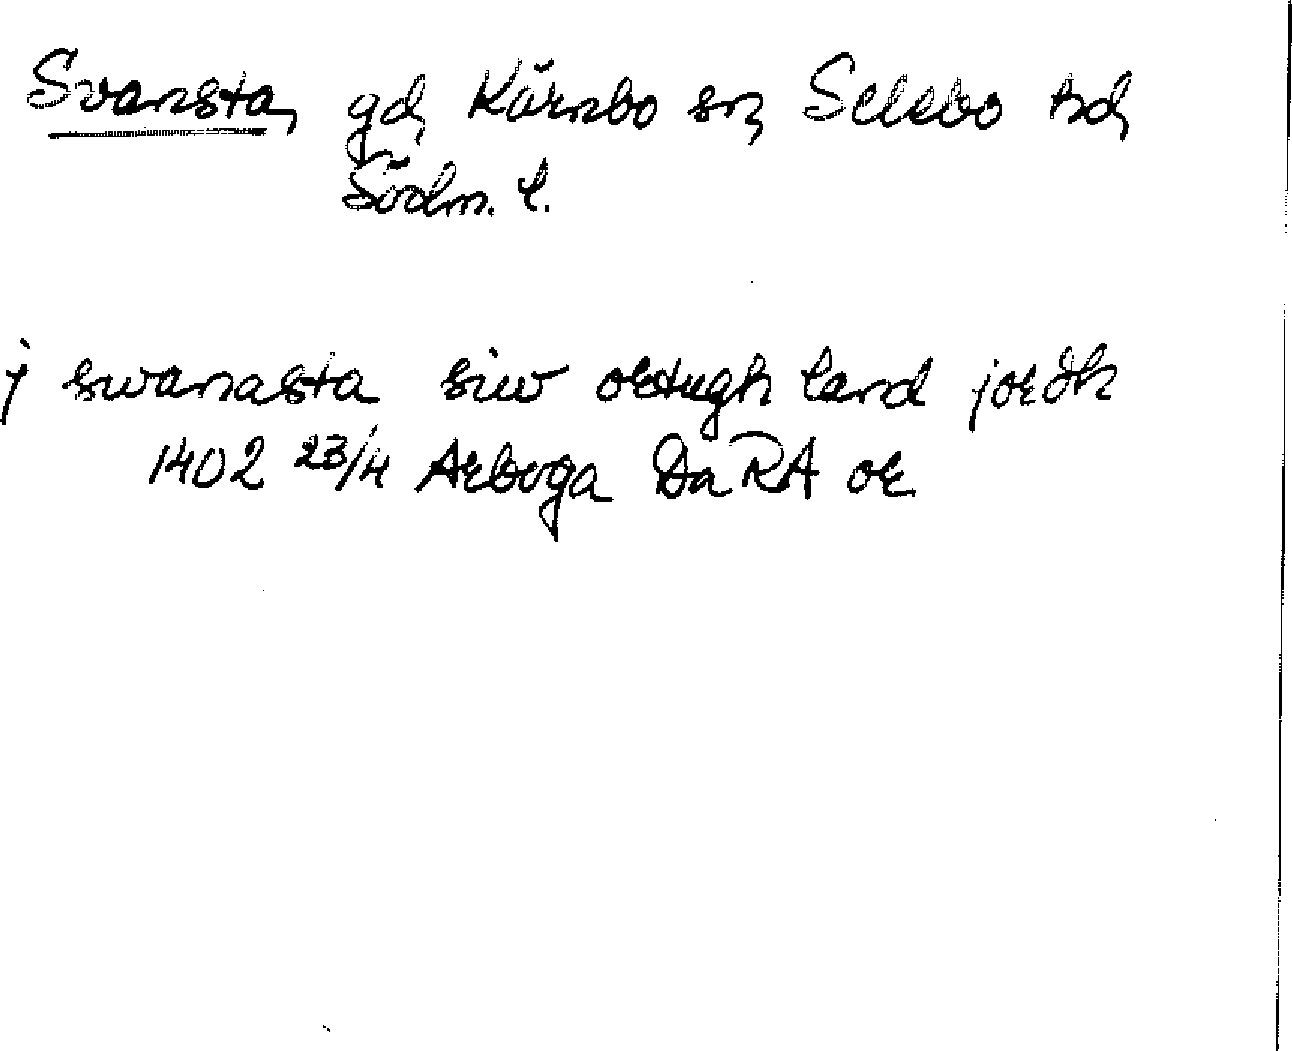 Svansta, gd, Kärnbo sn, Selebo hd,
Södm. l.
j swanasta siw ortugh land jordh
1402 23/4 Arboga Da RA or